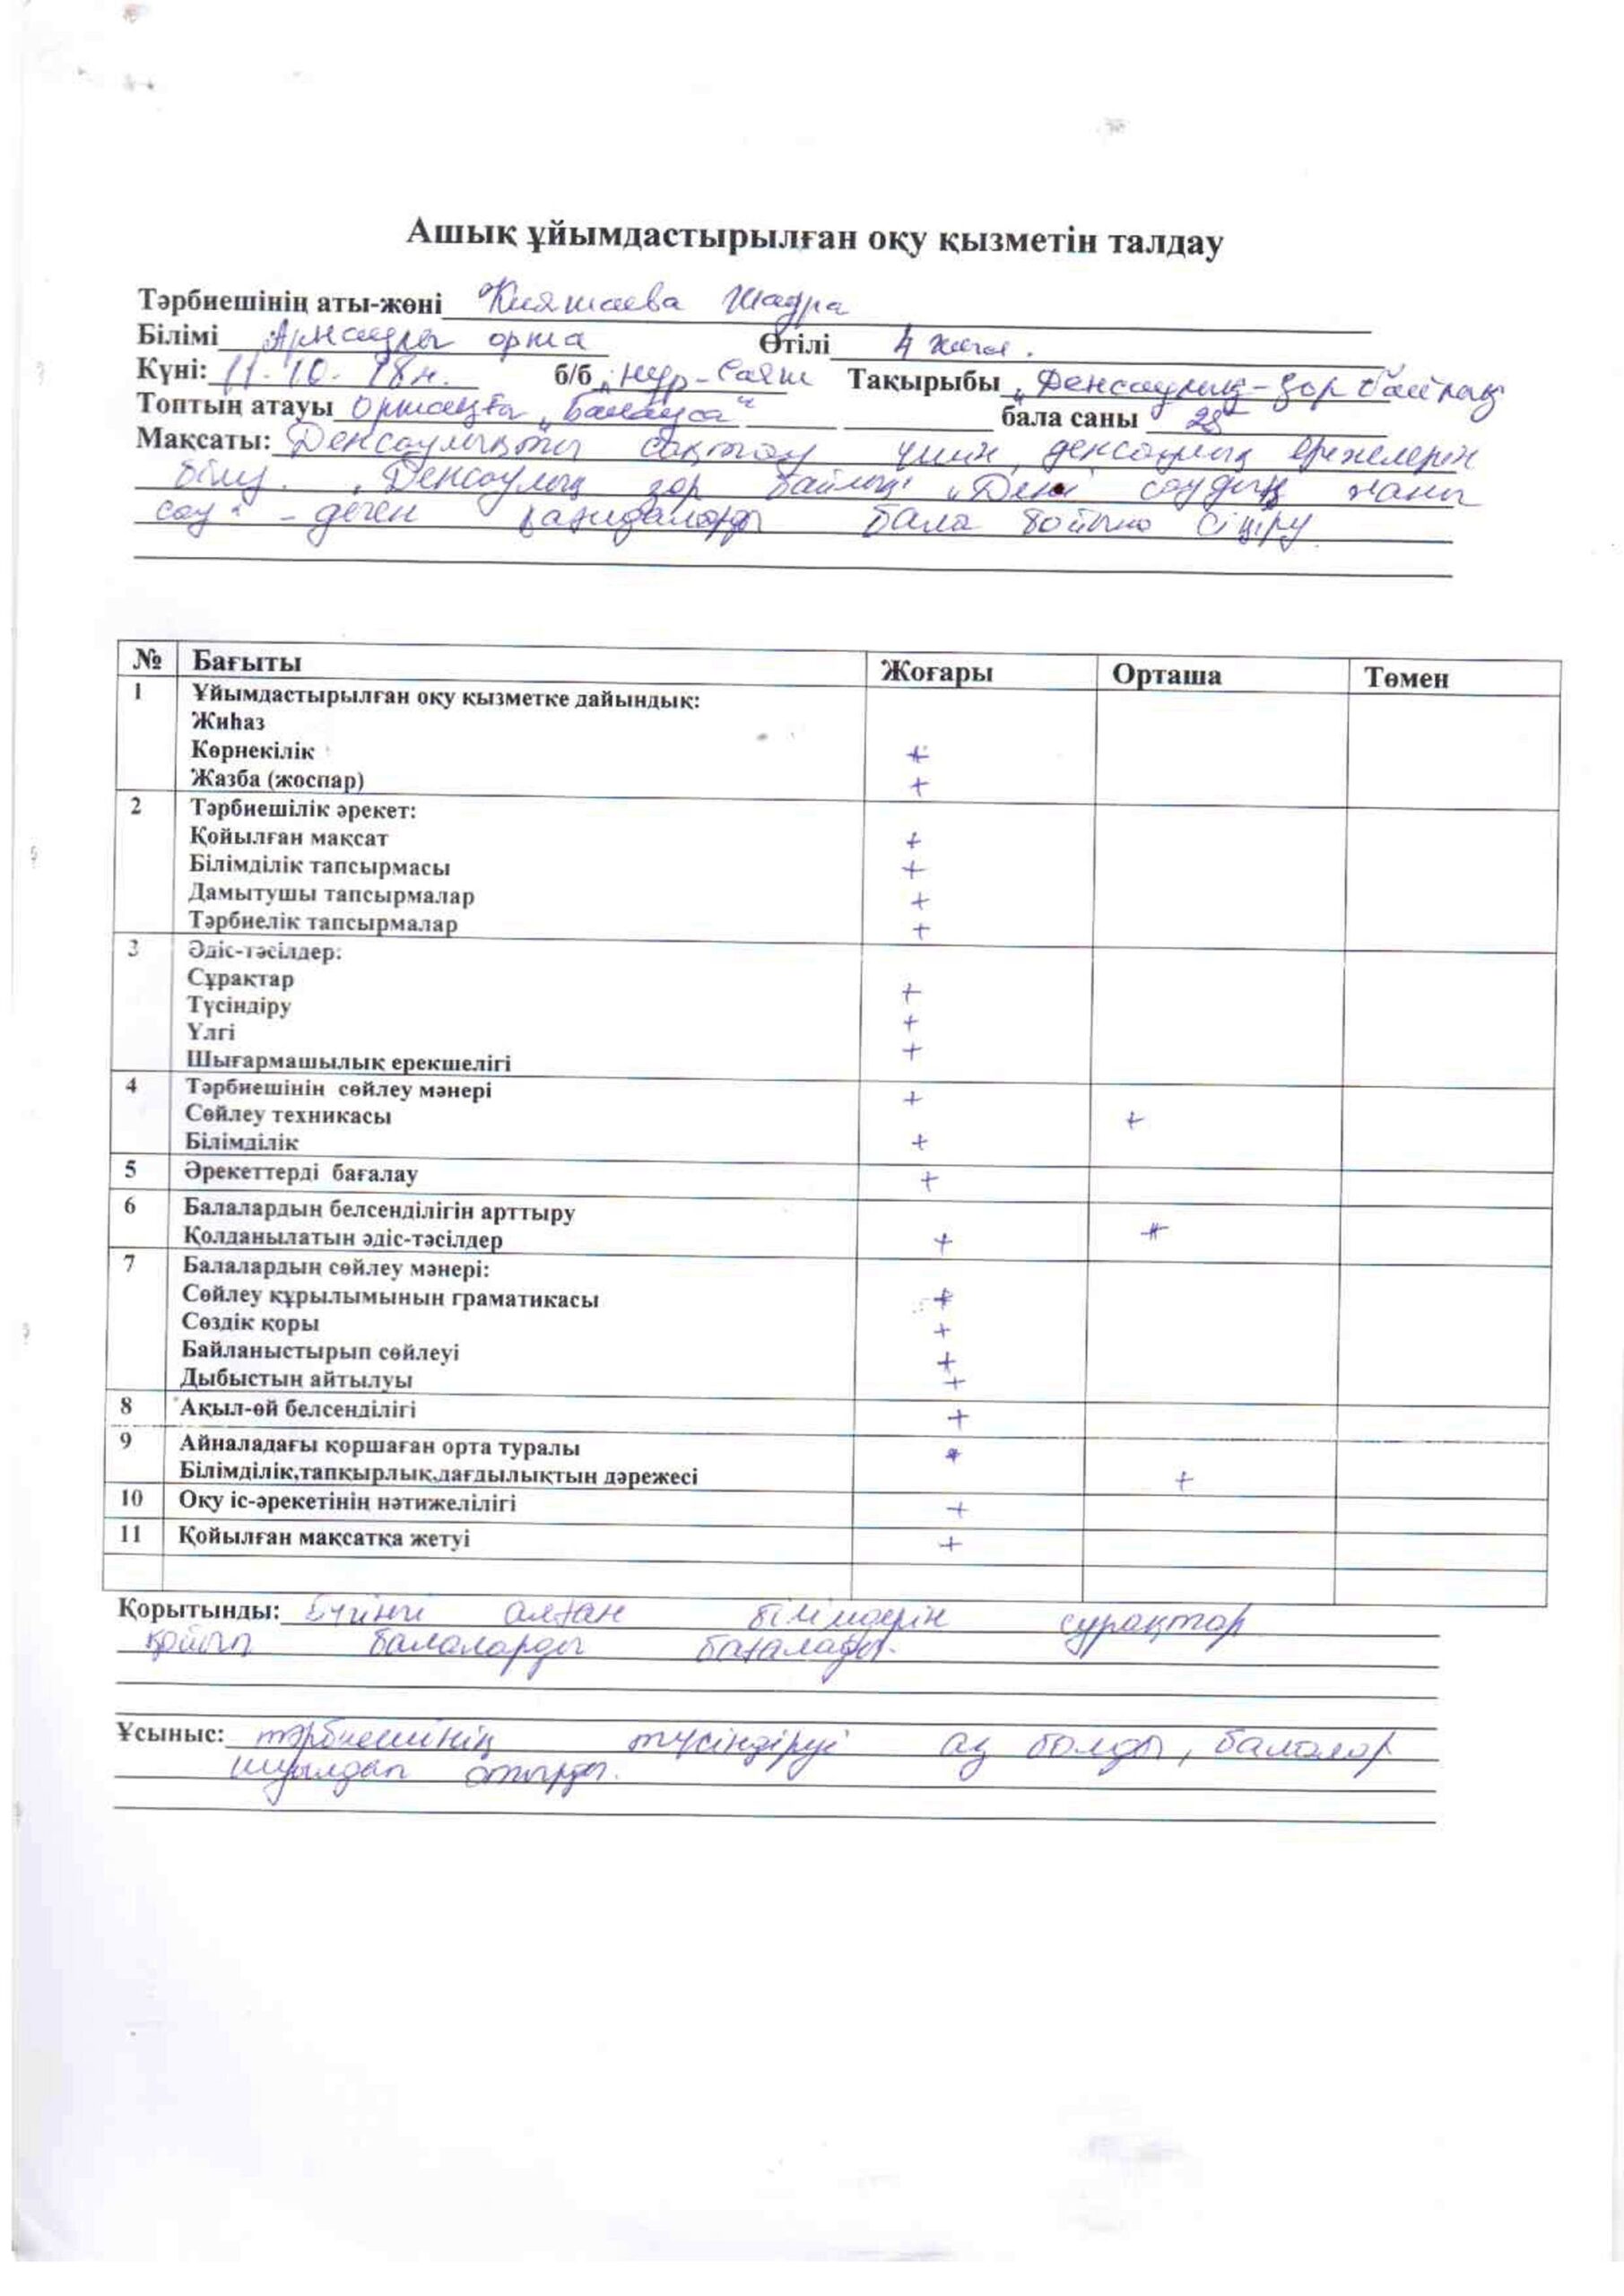 Ашық ұйымдастырылған оқу қызметін талдау
Тәрбиешінің аты-жөні Кияшаева Шадра
Білімі Арнаулы орта Өтілі 4 жыл.
Күні: 11.10.18ж. б/б „Нұр-Саят Тақырыбы „Денсаулық-зор байлық
Топтың атауы ортаңғы „Балауса“ бала саны 25
Мақсаты: Денсаулықты сақтау үшін денсаулық ережелерін
білу. „Денсаулық зор байлық „Дені саудың жаны
сау“ - деген қағидаларды бала бойына сіңіру.
№ Бағыты Жоғары Орташа Төмен
1 Ұйымдастырылған оқу қызметке дайындық:
Жиһаз
Көрнекілік +
Жазба (жоспар) +
2 Тәрбиешілік әрекет:
Қойылған мақсат +
Білімділік тапсырмасы +
Дамытушы тапсырмалар +
Тәрбиелік тапсырмалар +
3 Әдіс-тәсілдер:
Сұрақтар +
Түсіндіру +
Үлгі +
Шығармашылық ерекшелігі
4 Тәрбиешінін сөйлеу мәнері +
Сөйлеу техникасы +
Білімділік +
5 Әрекеттерді бағалау +
6 Балалардын белсенділігін арттыру +
Қолданылатын әдіс-тәсілдер +
7 Балалардын сөйлеу мәнері:
Сөйлеу құрылымынын граматикасы +
Сөздік қоры +
Байланыстырып сөйлеуі +
Дыбыстың айтылуы +
8 Ақыл-ой белсенділігі +
9 Айналадағы қоршаған орта туралы +
Білімділік,тапқырлық,дағдылықтын дәрежесі +
10 Оқу іс-әрекетінің нәтижелілігі +
11 Қойылған мақсатқа жетуі +
Қорытынды: Бүгінгі алған білімдерін сұрақтар
қойып балаларды бағалады.
Ұсыныс: тәрбиешінің түсіндіруі аз болды, балалар
шуылдап отырды.